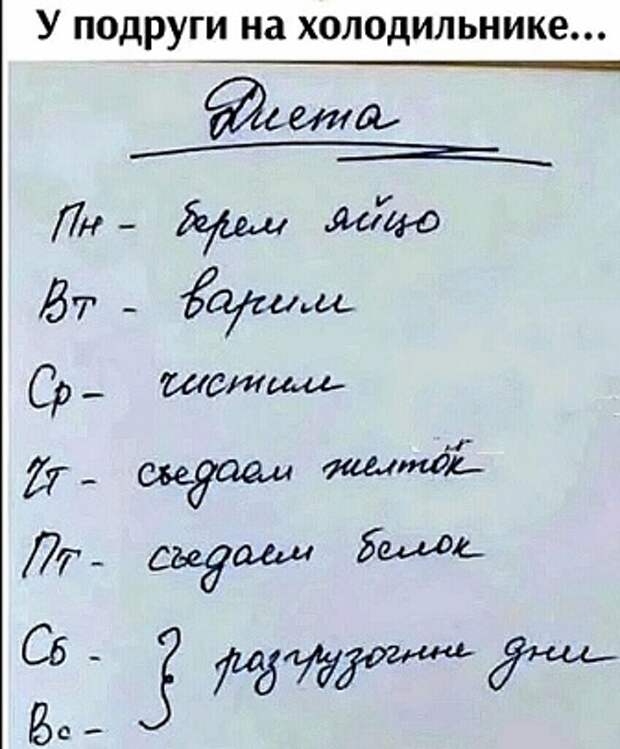 У подруги на холодильнике...
Диета
Пн - берем яйцо
Вт - варим
Ср - чистим
Чт - съедаем желток
Пт - съедаем белок
Сб - } разгрузочные дни
Вс -